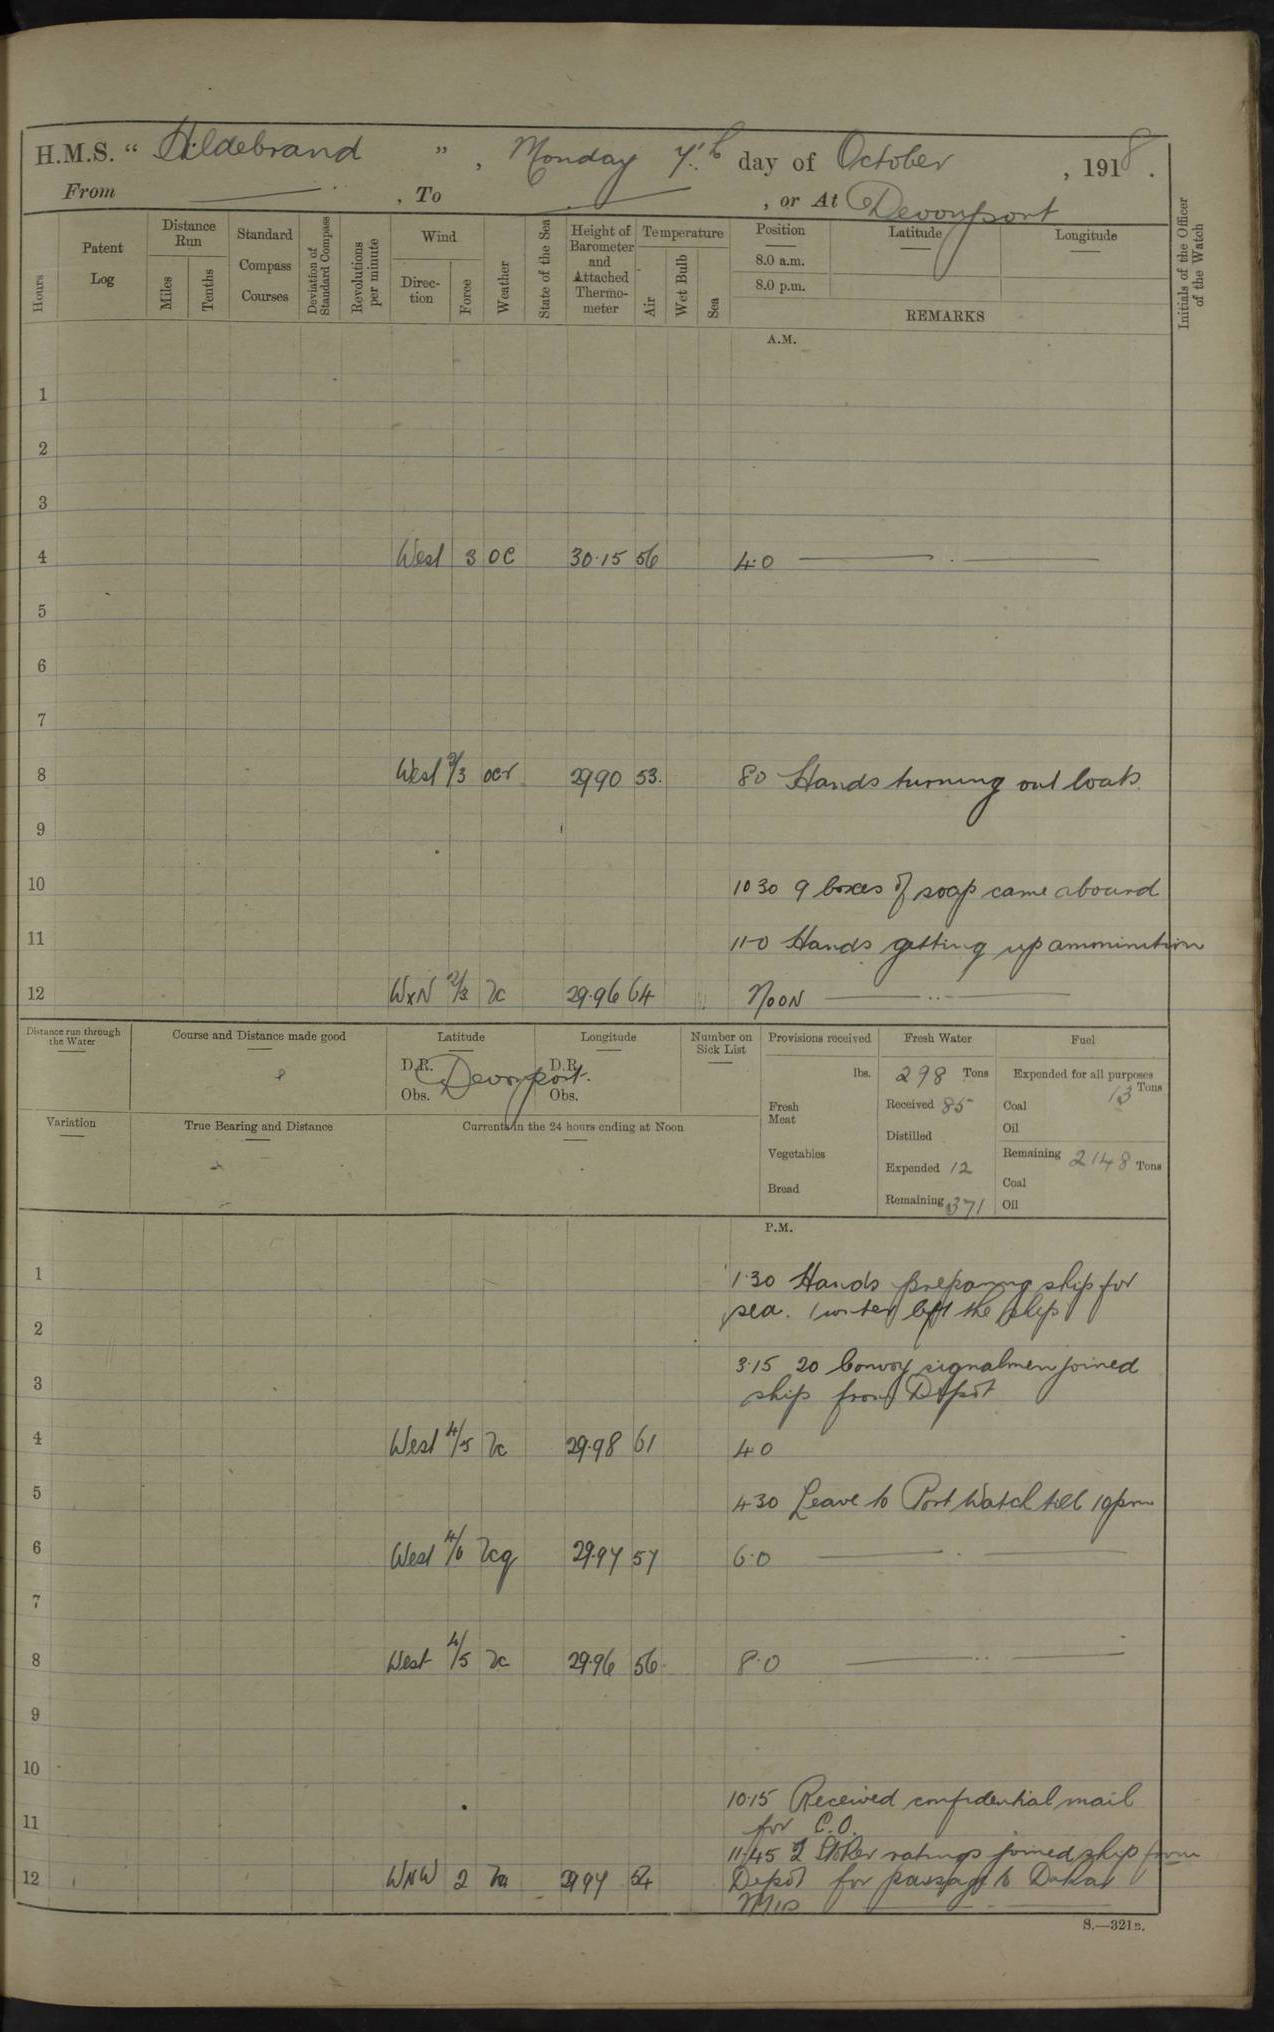 H.M.S. “ Hildebrand ” , Monday 7th day of October , 1918 .
From , To , or At Devonport
Hours
Patent Log
Distance Run
Miles
Tenths
Standard Compass Courses
Deviation of Standard Compass
Revolutions per minute
Wind
Direc-tion
Force
Weather
State of the Sea
Height of Barometer and Attached Thermo-meter
Temperature
Air
Wet Bulb
Sea
Position
8.0 a.m.
8.0 p.m.
Latitude
Longitude
REMARKS
Initials of the Officer of the Watch
A.M.
1
2
3
4 West 3 OC 30.15 56 4.0
5
6
7
8 West 2/3 ocr 2990 53. 80 Hands turning out boats
9
10 1030 9 boxes of soap came aboard
11 11-0 Hands getting up ammunition
12 WxN 2/3 bc 29.96 64 NOON
Distance run through the Water
Course and Distance made good
Latitude
D.R.
Obs.
Devonport.
Longitude
D.R.
Obs.
Number on Sick List
Provisions received
lbs.
Fresh Meat
Vegetables
Bread
Fresh Water
298 Tons
Received 85
Distilled
Expended 12
Remaining 371
Fuel
Expended for all purposes
13 Tons
Coal
Oil
Remaining 2148 Tons
Coal
Oil
Variation
True Bearing and Distance
Currents in the 24 hours ending at Noon
P.M.
1 1.30 Hands preparing ship for
sea. 1 writer left the ship
2
3.15 20 Convoy signalmen joined
3 ship from Depôt
4 West 4/5 bc 29.98 61 4 0
5 430 Leave to Port Watch till 10pm
6 West 4/6 bcq 29.97 57 6.0
7
8 West 4/5 bc 29.96 56 8.0
9
10
10.15 Received confidential mail
11 for C.O.
11.45 2 Stoker ratings joined ship from
12 WNW 2 29 97 54 Depôt for passage to Dakar
Mid
S.—321B.